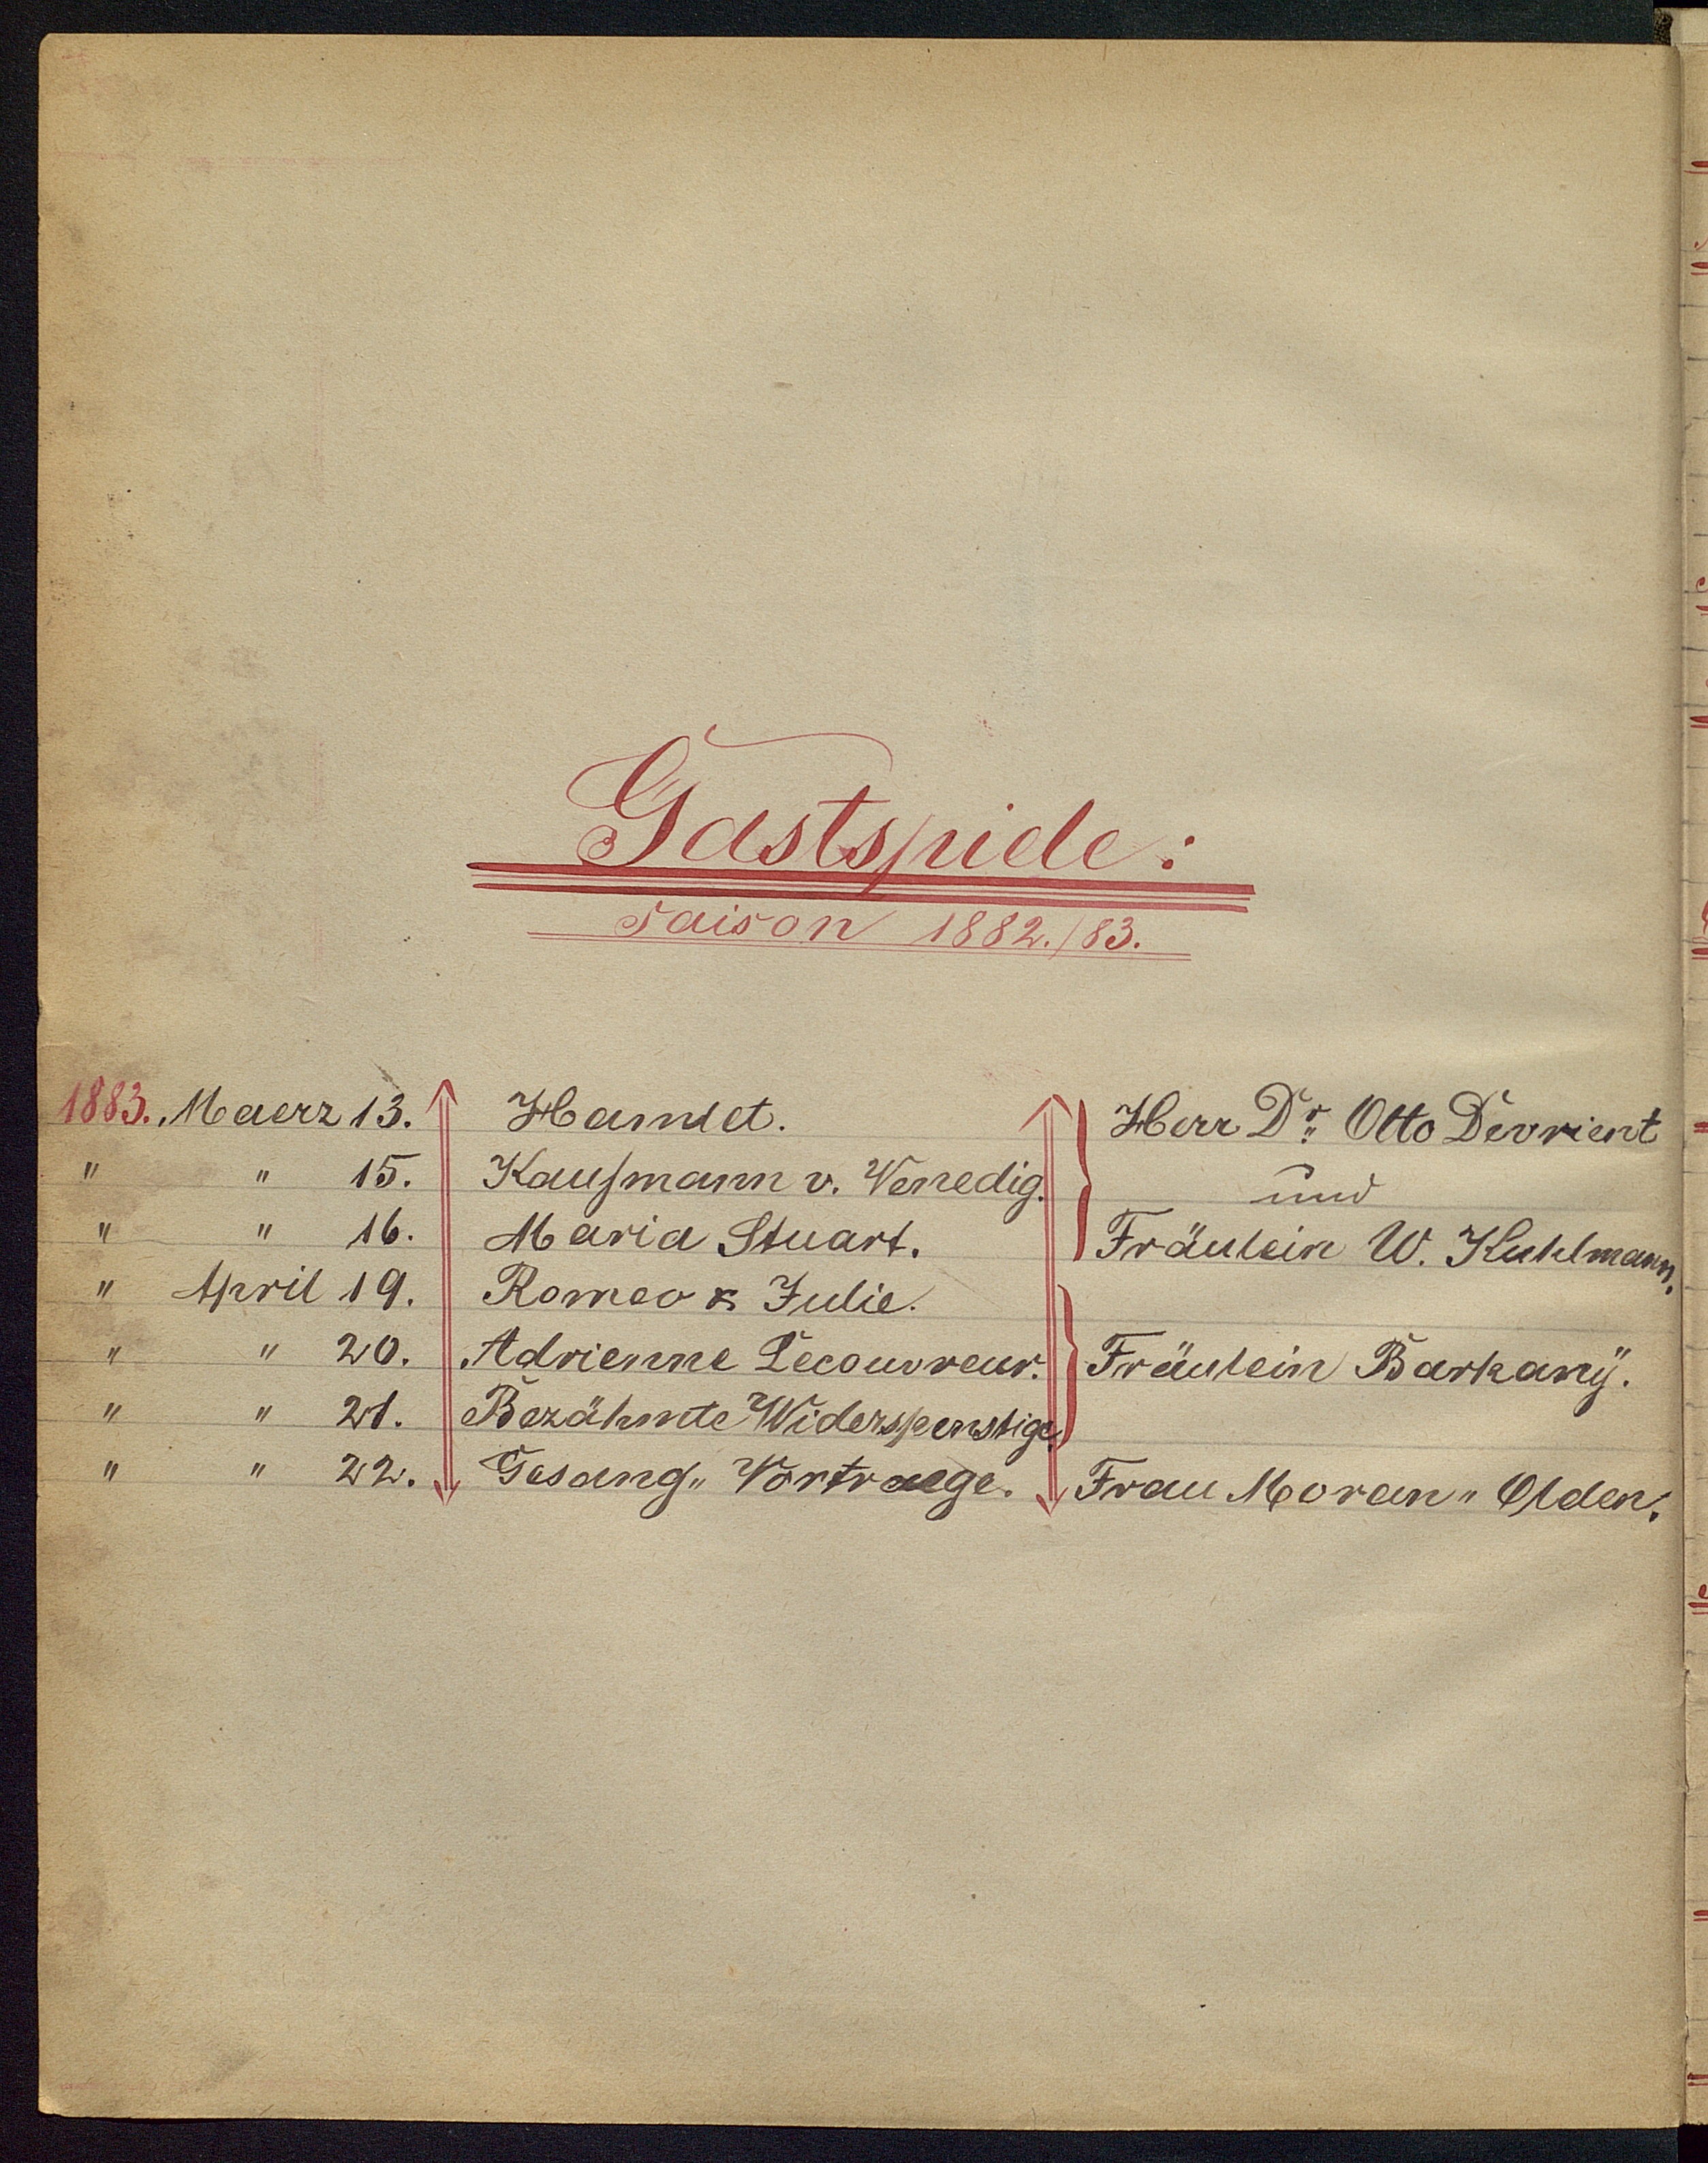 Gastspiele:
Saison 1882./83.
1883. Maerz 13. Hamlet. Herr Dr. Otto Devrient
" " 15. Kaufmann v. Venedig. und
" " 16. Maria Stuart. Fräulein W. Kuhlmann.
" April 19. Romeo & Julie.
" " 20. Adrienne Lecouvreur. Fräulein Barkanÿ.
" " 21. Bezähmte Widerspenstige.
" " 22. Gesang" Vortraege. Frau Moran" Olden.